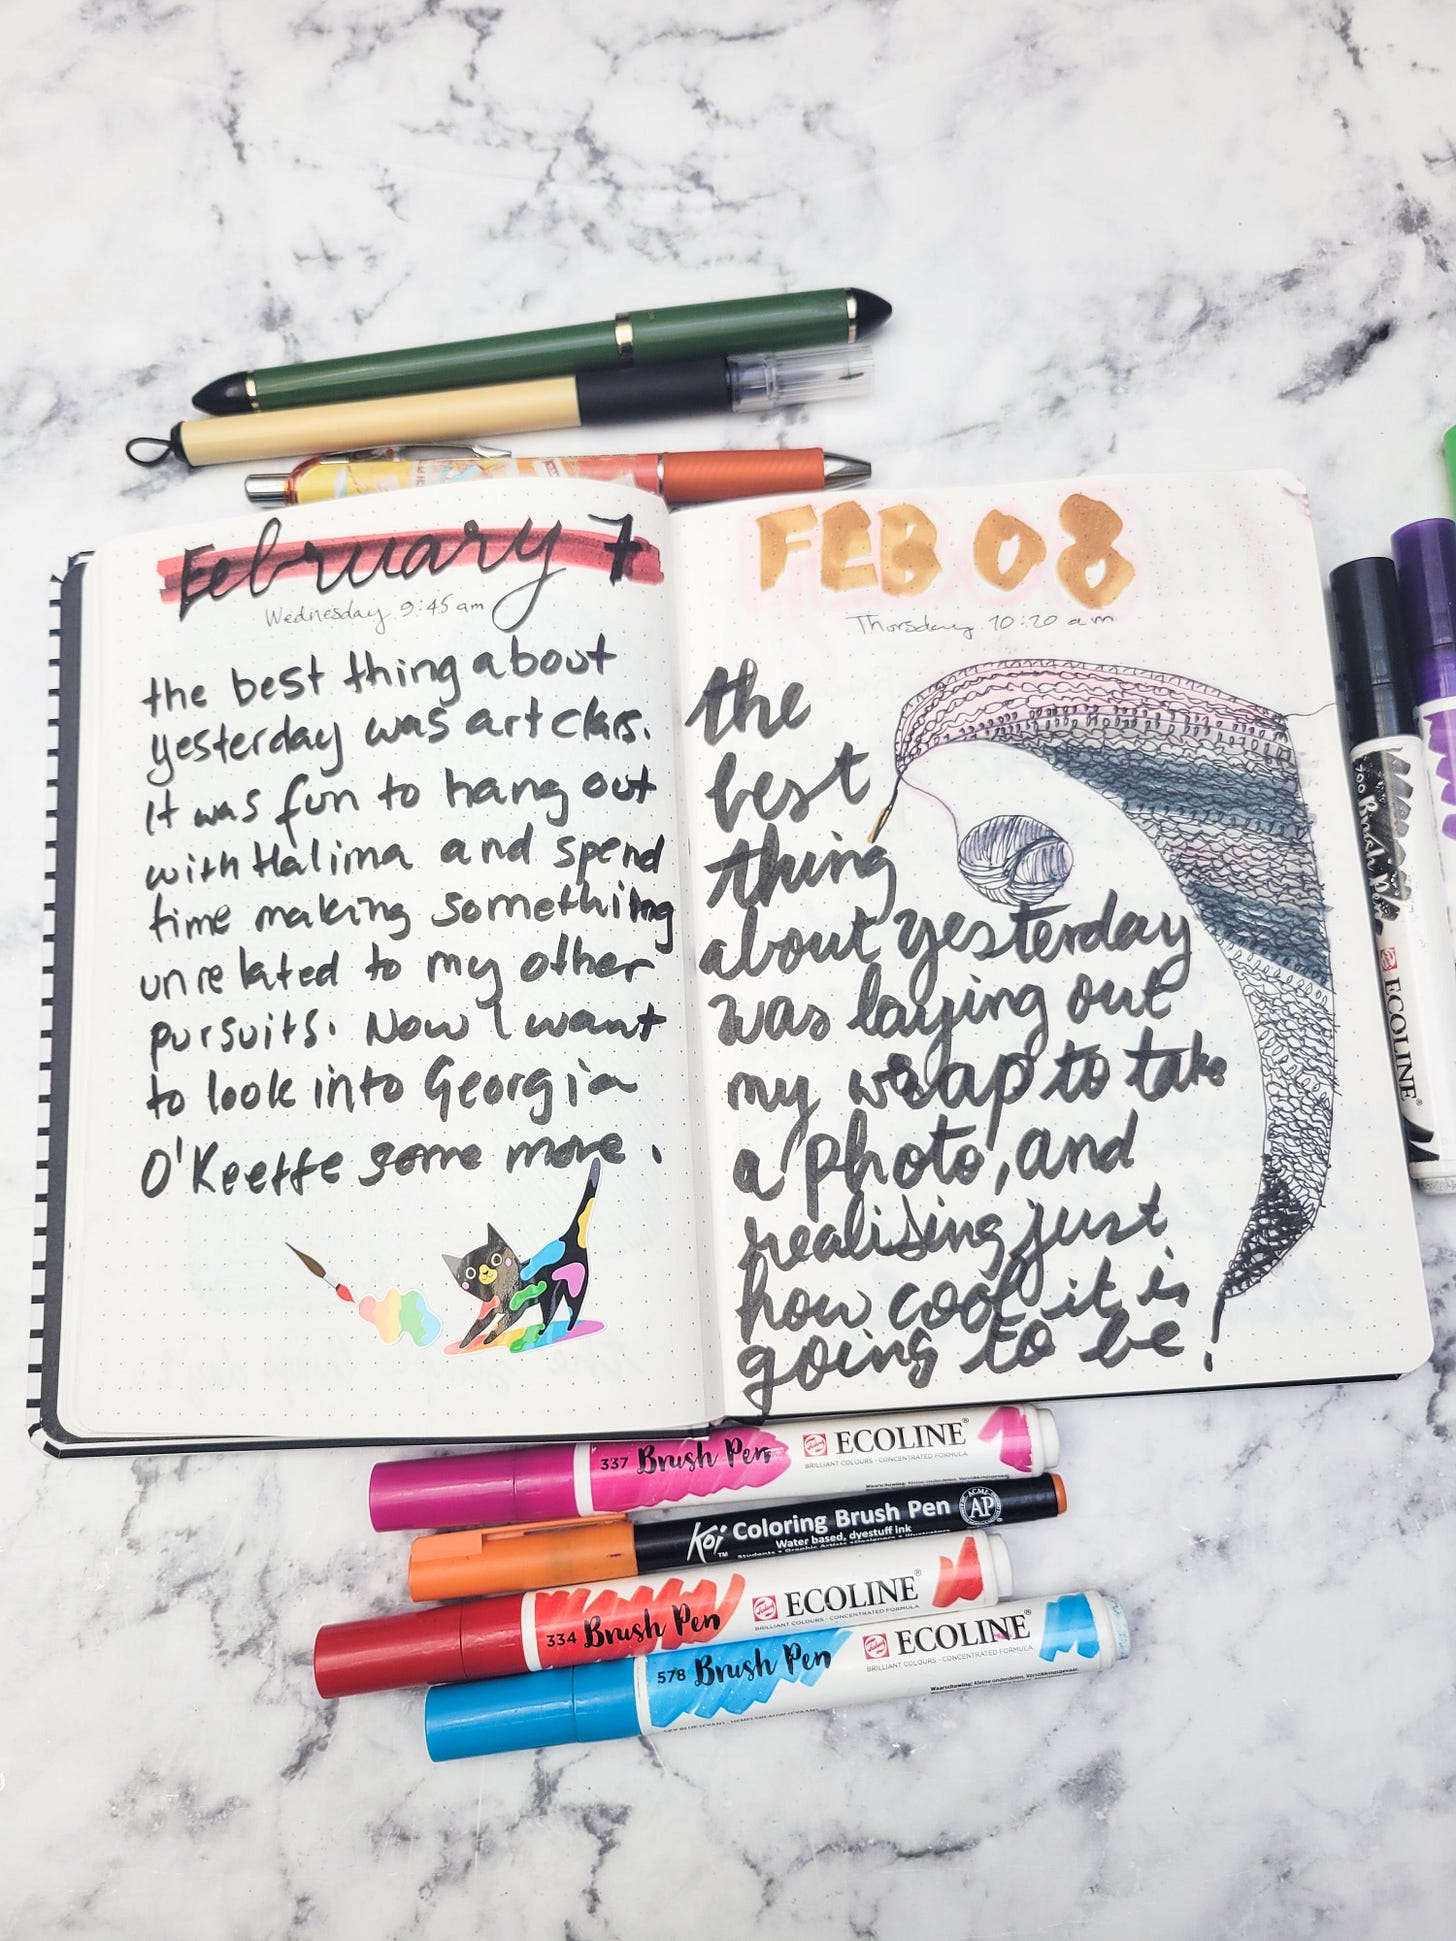 February 7
Wednesday 9:45 am
the best thing about
yesterday was art class.
It was fun to hang out
with Halima and spend
time making something
unrelated to my other
pursuits. Now I want
to look into Georgia
O'Keeffe some more.
FEB 08
Thorsday 10:20 am
the
best
thing
about yesterday
was laying out
my wrap to take
a photo, and
realising just
how cool it is
going to be!
Brush Pen
ECOLINE
337 Brush Pen ECOLINE®
BRILLIANT COLOURS - CONCENTRATED FORMULA
Koi™ Coloring Brush Pen ACMI AP
Water based, dyestuff ink
Students • Graphic Artists • Designers • Illustrators
334 Brush Pen ECOLINE®
BRILLIANT COLOURS - CONCENTRATED FORMULA
578 Brush Pen ECOLINE®
BRILLIANT COLOURS - CONCENTRATED FORMULA